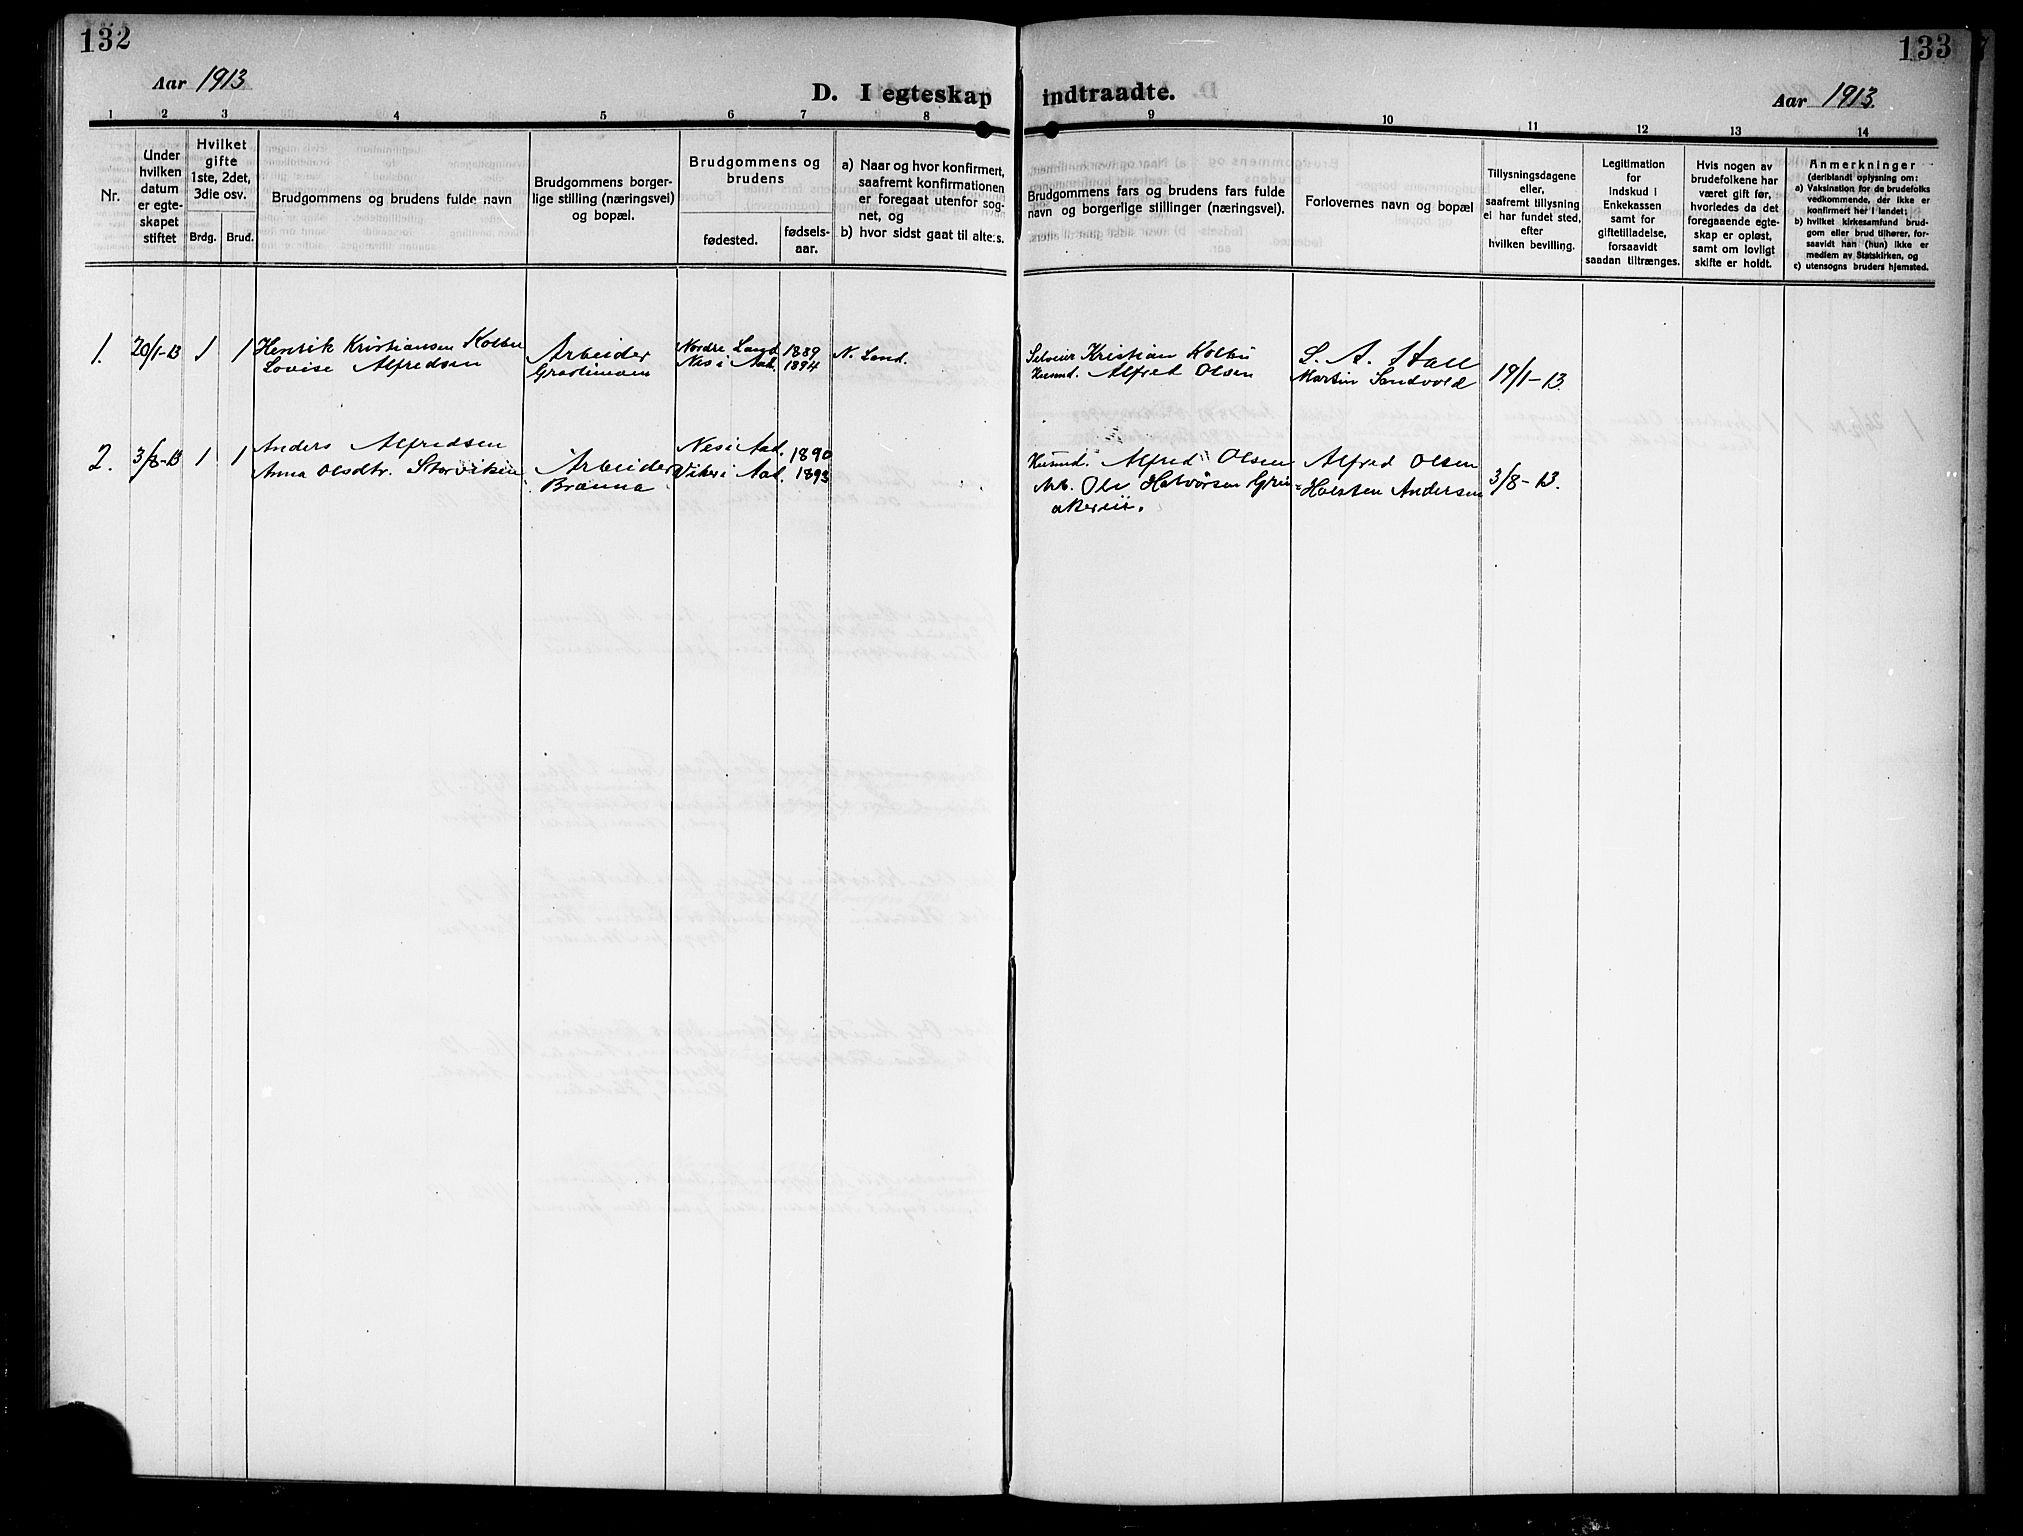 132
133
Aar 1913
D. I egteskap indtraadte.
Aar 1913.
1 2 3 4 5 6 7 8 9 10 11 12 13 14
Nr.
Under
hvilken
datum
er egte-
skapet
stiftet
Hvilket
gifte
1ste, 2det,
3die osv.
Brdg. Brud.
Brudgommens og brudens fulde navn
Brudgommens borger-
lige stilling (næringsvei)
og bopæl.
Brudgommens og
brudens
fødested.
fødsels-
aar.
a) Naar og hvor konfirmert,
saafremt konfirmationen
er foregaat utenfor sog-
net, og
b) hvor sidst gaat til alters.
Brudgommens fars og brudens fars fulde
navn og borgerlige stillinger (næringsvei).
Forlovernes navn og bopæl
Tillysningsdagene
eller,
saafremt tillysning
ei har fundet sted,
efter
hvilken bevilling.
Legitimation
for
indskud i
Enkekassen
samt for
giftetilladelse,
forsaavidt
saadan tiltrænges.
Hvis nogen av
brudefolkene har
været gift før,
hvorledes da det
foregaaende egte-
skap er opløst,
samt om lovligt
skifte er holdt.
Anmerkninger
(deriblandt oplysning om:
a) Vaksination for de brudefolks
vedkommende, der ikke er
konfirmert her i landet;
b) hvilket kirkesamfund brud-
gom eller brud tilhører, for-
saavidt han (hun) ikke er
medlem av Statskirken, og
c) utensogns bruders hjemsted.
1. 20/1-13 1 1 Henrik Kristiansen Kolbu Arbeider Nordre Land 1889 N. Land. Selveier Kristian Kolbu L. A. Hall 19/1-13.
Lovise Alfredsen Nes i Aad. 1894 Husmd. Alfred Olsen Martin Sandvold
2. 3/8-13 1 1 Anders Alfredsen Arbeider Nes i Aad. 1890 Husmd. Alfred Olsen Alfred Olsen 3/8-13.
Anna Olsdtr. Storviken Brænna Viker i Aad. 1893 Arb. Ole Halvorsen Grin= Holsten Andersen
akereie.